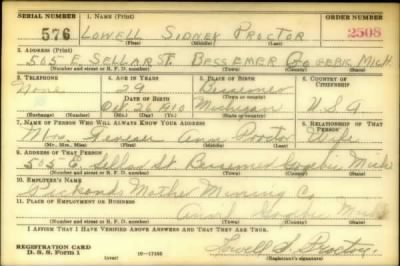 SERIAL NUMBER 1. NAME (Print) ORDER NUMBER
576 LOWELL SIDNEY PROCTOR 2508
(First) (Middle) (Last)
2. ADDRESS (Print)
505 E. SELLAR ST. BESSEMER GOGEBIC MICH
(Number and street or R. F. D. number) (Town) (County) (State)
3. TELEPHONE 4. AGE IN YEARS 5. PLACE OF BIRTH 6. COUNTRY OF CITIZENSHIP
None 29 Bessemer
(Town or county)
1910 Michigan U.S.A
7. NAME OF PERSON WHO WILL ALWAYS KNOW YOUR ADDRESS 8. RELATIONSHIP OF THAT PERSON
Mrs. Ann Proctor Wife
(Mr., Mrs., Miss) (First) (Middle) (Last)
9. ADDRESS OF THAT PERSON
505 E. Sellar St Bessemer Gogebic Mich
(Number and street or R. F. D. number) (Town) (County) (State)
10. EMPLOYER'S NAME
Mather Mining Co
11. PLACE OF EMPLOYMENT OR BUSINESS
Gogebic
(Number and street or R. F. D. number) (Town) (County) (State)
I AFFIRM THAT I HAVE VERIFIED ABOVE ANSWERS AND THAT THEY ARE TRUE.
REGISTRATION CARD
D. S. S. Form 1 (over) Lowell S. Proctor
(Registrant's signature)